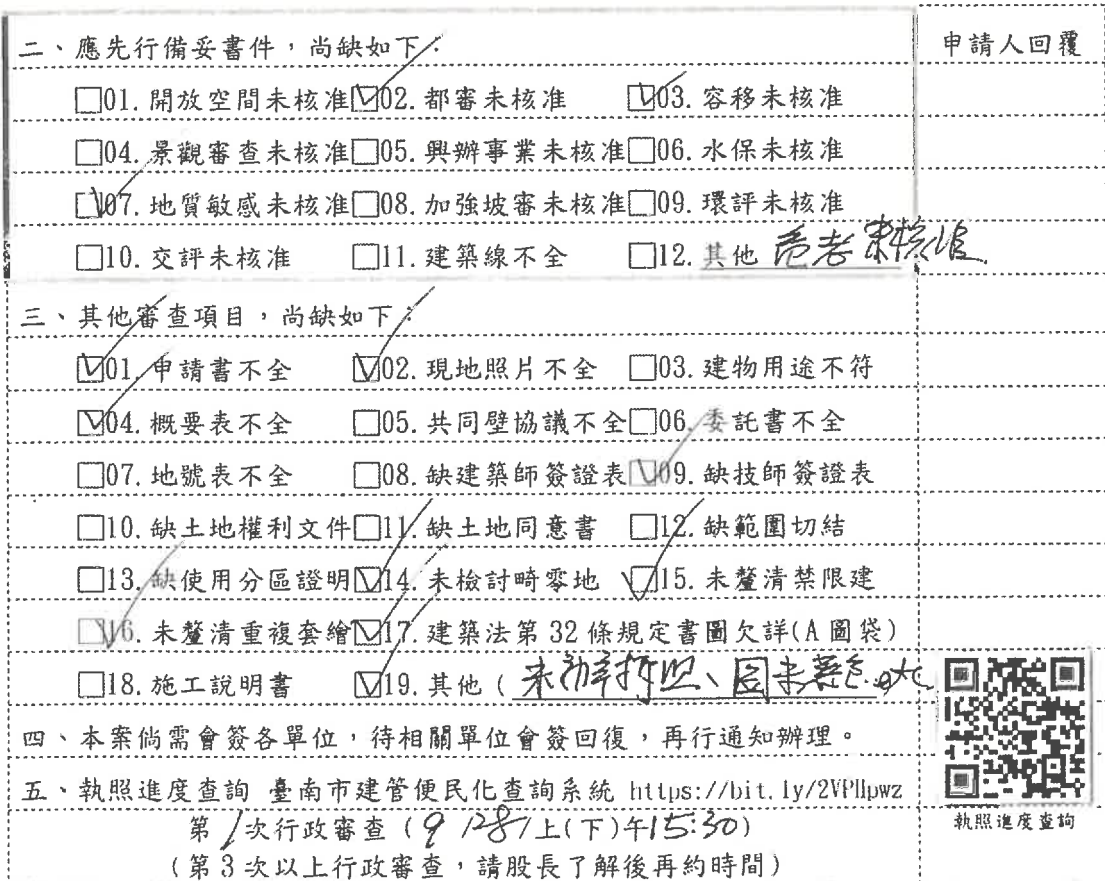 二、應先行備妥書件，尚缺如下： 申請人回覆
☐01.開放空間未核准☑02.都審未核准 ☑03.容移未核准
☐04.景觀審查未核准☐05.興辦事業未核准☐06.水保未核准
☑07.地質敏感未核准☐08.加強坡審未核准☐09.環評未核准
☐10.交評未核准 ☐11.建築線不全 ☐12.其他 危老未核准
三、其他審查項目，尚缺如下：
☑01.申請書不全 ☑02.現地照片不全 ☐03.建物用途不符
☑04.概要表不全 ☐05.共同壁協議不全☐06.委託書不全
☐07.地號表不全 ☐08.缺建築師簽證表☑09.缺技師簽證表
☐10.缺土地權利文件☐11.缺土地同意書 ☐12.缺範圍切結
☐13.缺使用分區證明☑14.未檢討畸零地 ☑15.未釐清禁限建
☑16.未釐清重複套繪☑17.建築法第32條規定書圖欠詳(A圖袋)
☐18.施工說明書 ☑19.其他( 未辦拆照、圖未著色
四、本案倘需會簽各單位，待相關單位會簽回復，再行通知辦理。
五、執照進度查詢 臺南市建管便民化查詢系統 https://bit.ly/2VPHpwz
執照進度查詢
第1次行政審查(9/28/上(下)午15:30)
(第3次以上行政審查，請股長了解後再約時間)